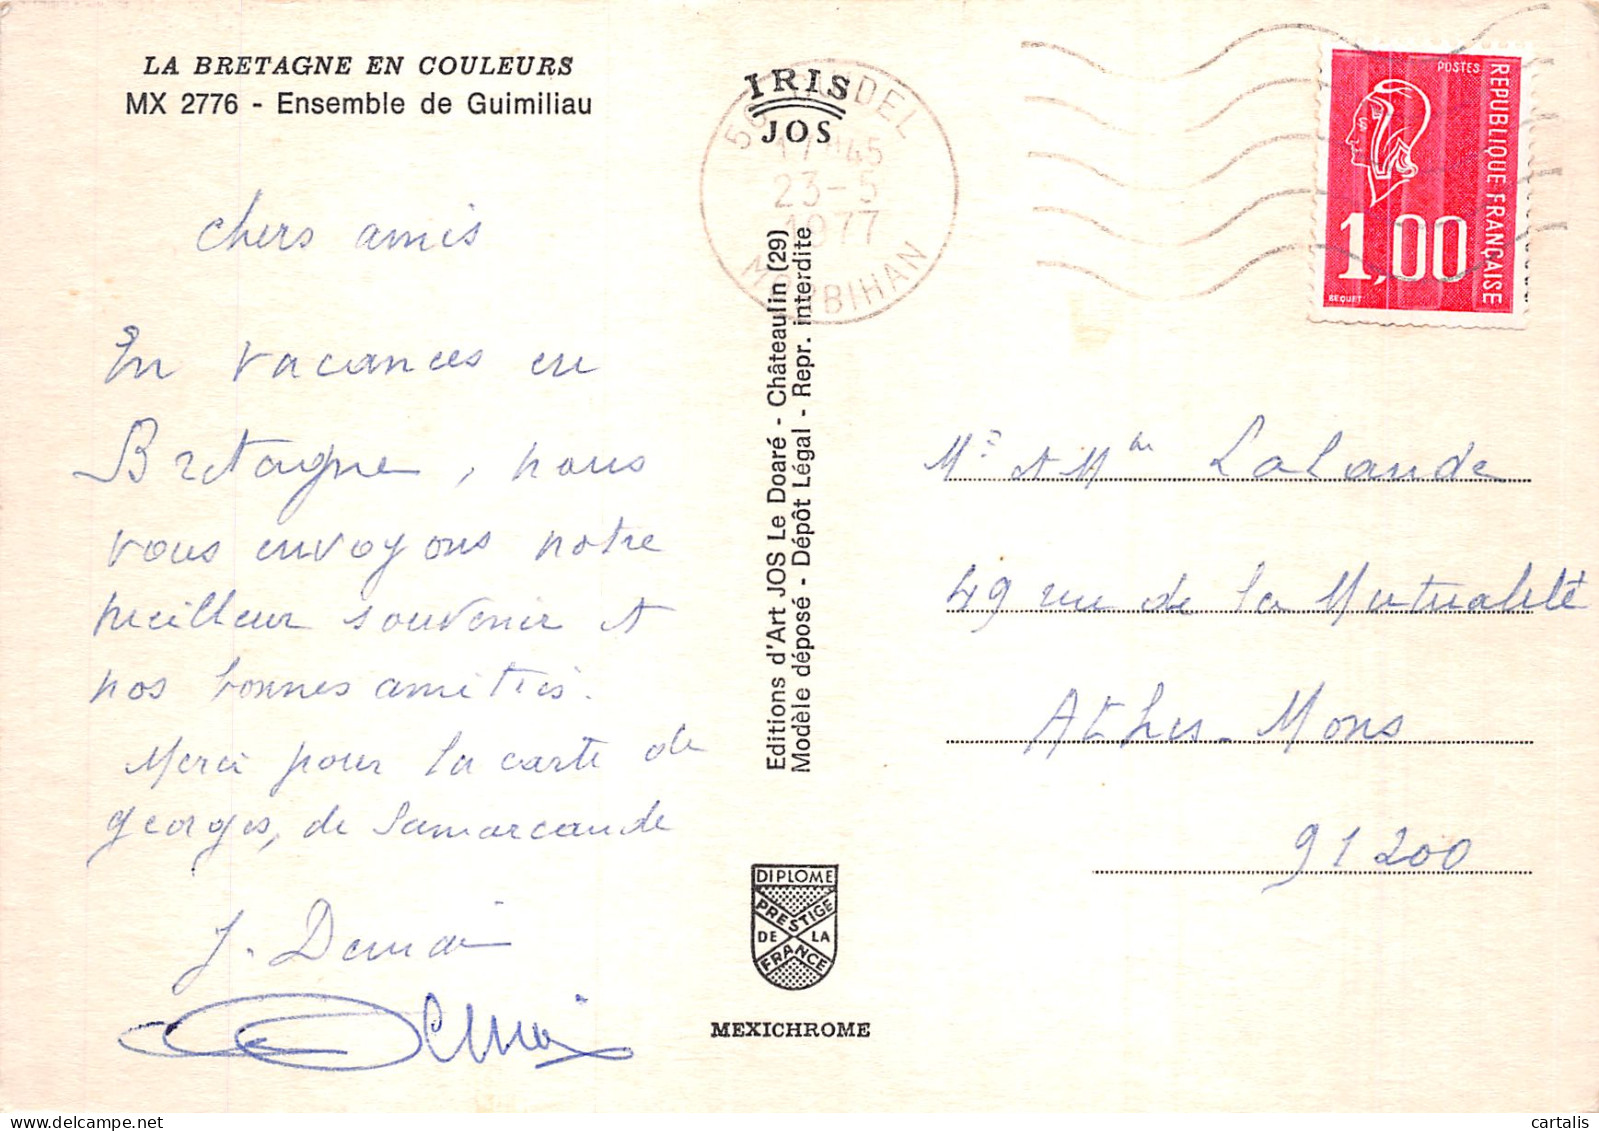 LA BRETAGNE EN COULEURS
MX 2776 - Ensemble de Guimiliau
chers amis
En vacances en
Bretagne, nous
vous envoyons notre
meilleur souvenir et
nos bonnes amitiés.
Merci pour la carte de
georges, de Samarcande
J.
IRIS
JOS
17 H 45
23-5
1977
MORBIHAN
Editions d'Art JOS Le Doaré - Châteaulin (29)
Modèle déposé - Dépôt Légal - Repr. interdite
DIPLOME
PRESTIGE
DE LA
FRANCE
MEXICHROME
POSTES
REPUBLIQUE FRANÇAISE
1,00
BEQUET
Mr et Mme Lalande
49 rue de la Mutualité
Athis-Mons
91200
cartalis